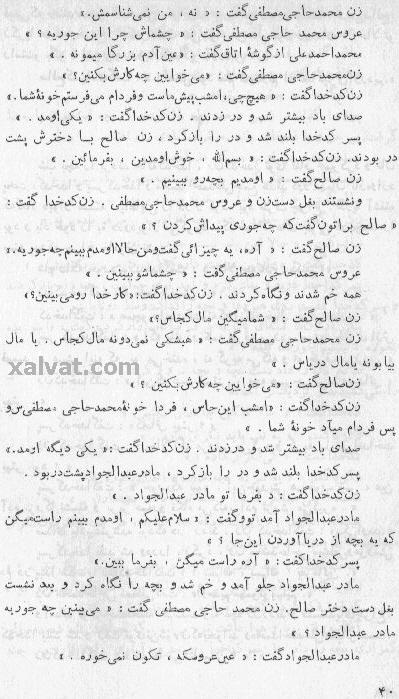 زن محمدحاجی‌مصطفی‌گفت : « نه ، من نمی‌شناسمش.»
عروس محمد حاجی مصطفی‌گفت : « چشماش چرا این جوریه ؟ »
محمداحمدعلی ازگوشهٔ اتاق‌گفت: «عین‌آدم بزرگا میمونه . »
زن‌محمدحاجی مصطفی‌گفت : «می‌خوایین چه‌کارش‌بکنین؟»
زن‌کدخداگفت : « هیچ‌چی،امشب‌پیش‌ماست وفردام می‌فرستم‌خونهٔ‌شما.»
صدای باد بیشتر شد و در زدند . زن‌کدخداگفت : « یکی‌اومد . »
پسر کدخدا بلند شد و در را بازکرد ، زن صالح بـا دخترش پشت
در بودند. زن‌کدخداگفت : « بسم‌الله ، خوش‌اومدین ، بفرمائین . »
زن صالح‌گفت : « اومدیم بچه‌رو ببینیم . »
ونشستند بغل دست‌زن و عروس محمدحاجی‌مصطفی . زن‌کدخدا گفت :
« صالح براتون‌گفت‌که چه‌جوری پیداش‌کردن ؟ »
زن صالح‌گفت : « آره، یه چیزائی‌گفت‌ومن‌حالااومدم‌ببینم‌چه‌جوریه.»
عروس محمدحاجی مصطفی‌گفت : « چشماشوببینین . »
همه خم شدند ونگاه‌کردند . زن‌کدخداگفت: «کارخدا رومی‌بینین؟»
زن صالح‌گفت : « شمامیگین مال‌کجاس؟»
زن محمدحاجی مصطفی‌گفت : « هیشکی نمی‌دونه مال‌کجاس . یا مال
بیابونه یامال دریاس . »
xalvat.com
زن‌صالح‌گفت : «می‌خوایین چه‌کارش بکنین ؟ »
زن‌کدخداگفت : «امشب این‌جاس ، فردا خونهٔ‌محمدحاجی مصطفی‌س‌و
پس فردام میآد خونهٔ شما . »
صدای باد بیشتر شد و درزدند . زن‌کدخداگفت : « یکی دیگه اومد.»
پسرکدخدا بلند شد و در را بازکرد ، مادرعبدالجوادپشت‌دربود .
زن‌کدخداگفت : د بفرما تو مادر عبدالجواد . »
مادرعبدالجواد آمد تووگفت : « سلام‌علیکم ، اومدم ببینم راست‌میگن
که یه بچه از دریاآوردن این‌جا ؟ »
پسرکدخداگفت : « آره راست میگن ، بفرما ببین.»
مادر عبدالجواد جلو آمد و خم شد و بچه را نگاه کرد و بعد نشست
بغل دست دختر صالح. زن محمد حاجی مصطفی گفت : « می‌بینین چه جوریه
مادر عبدالجواد ؟ »
مادرعبدالجوادگفت : « عین‌عروسکه ، تکون نمی‌خوره . »
۴۰